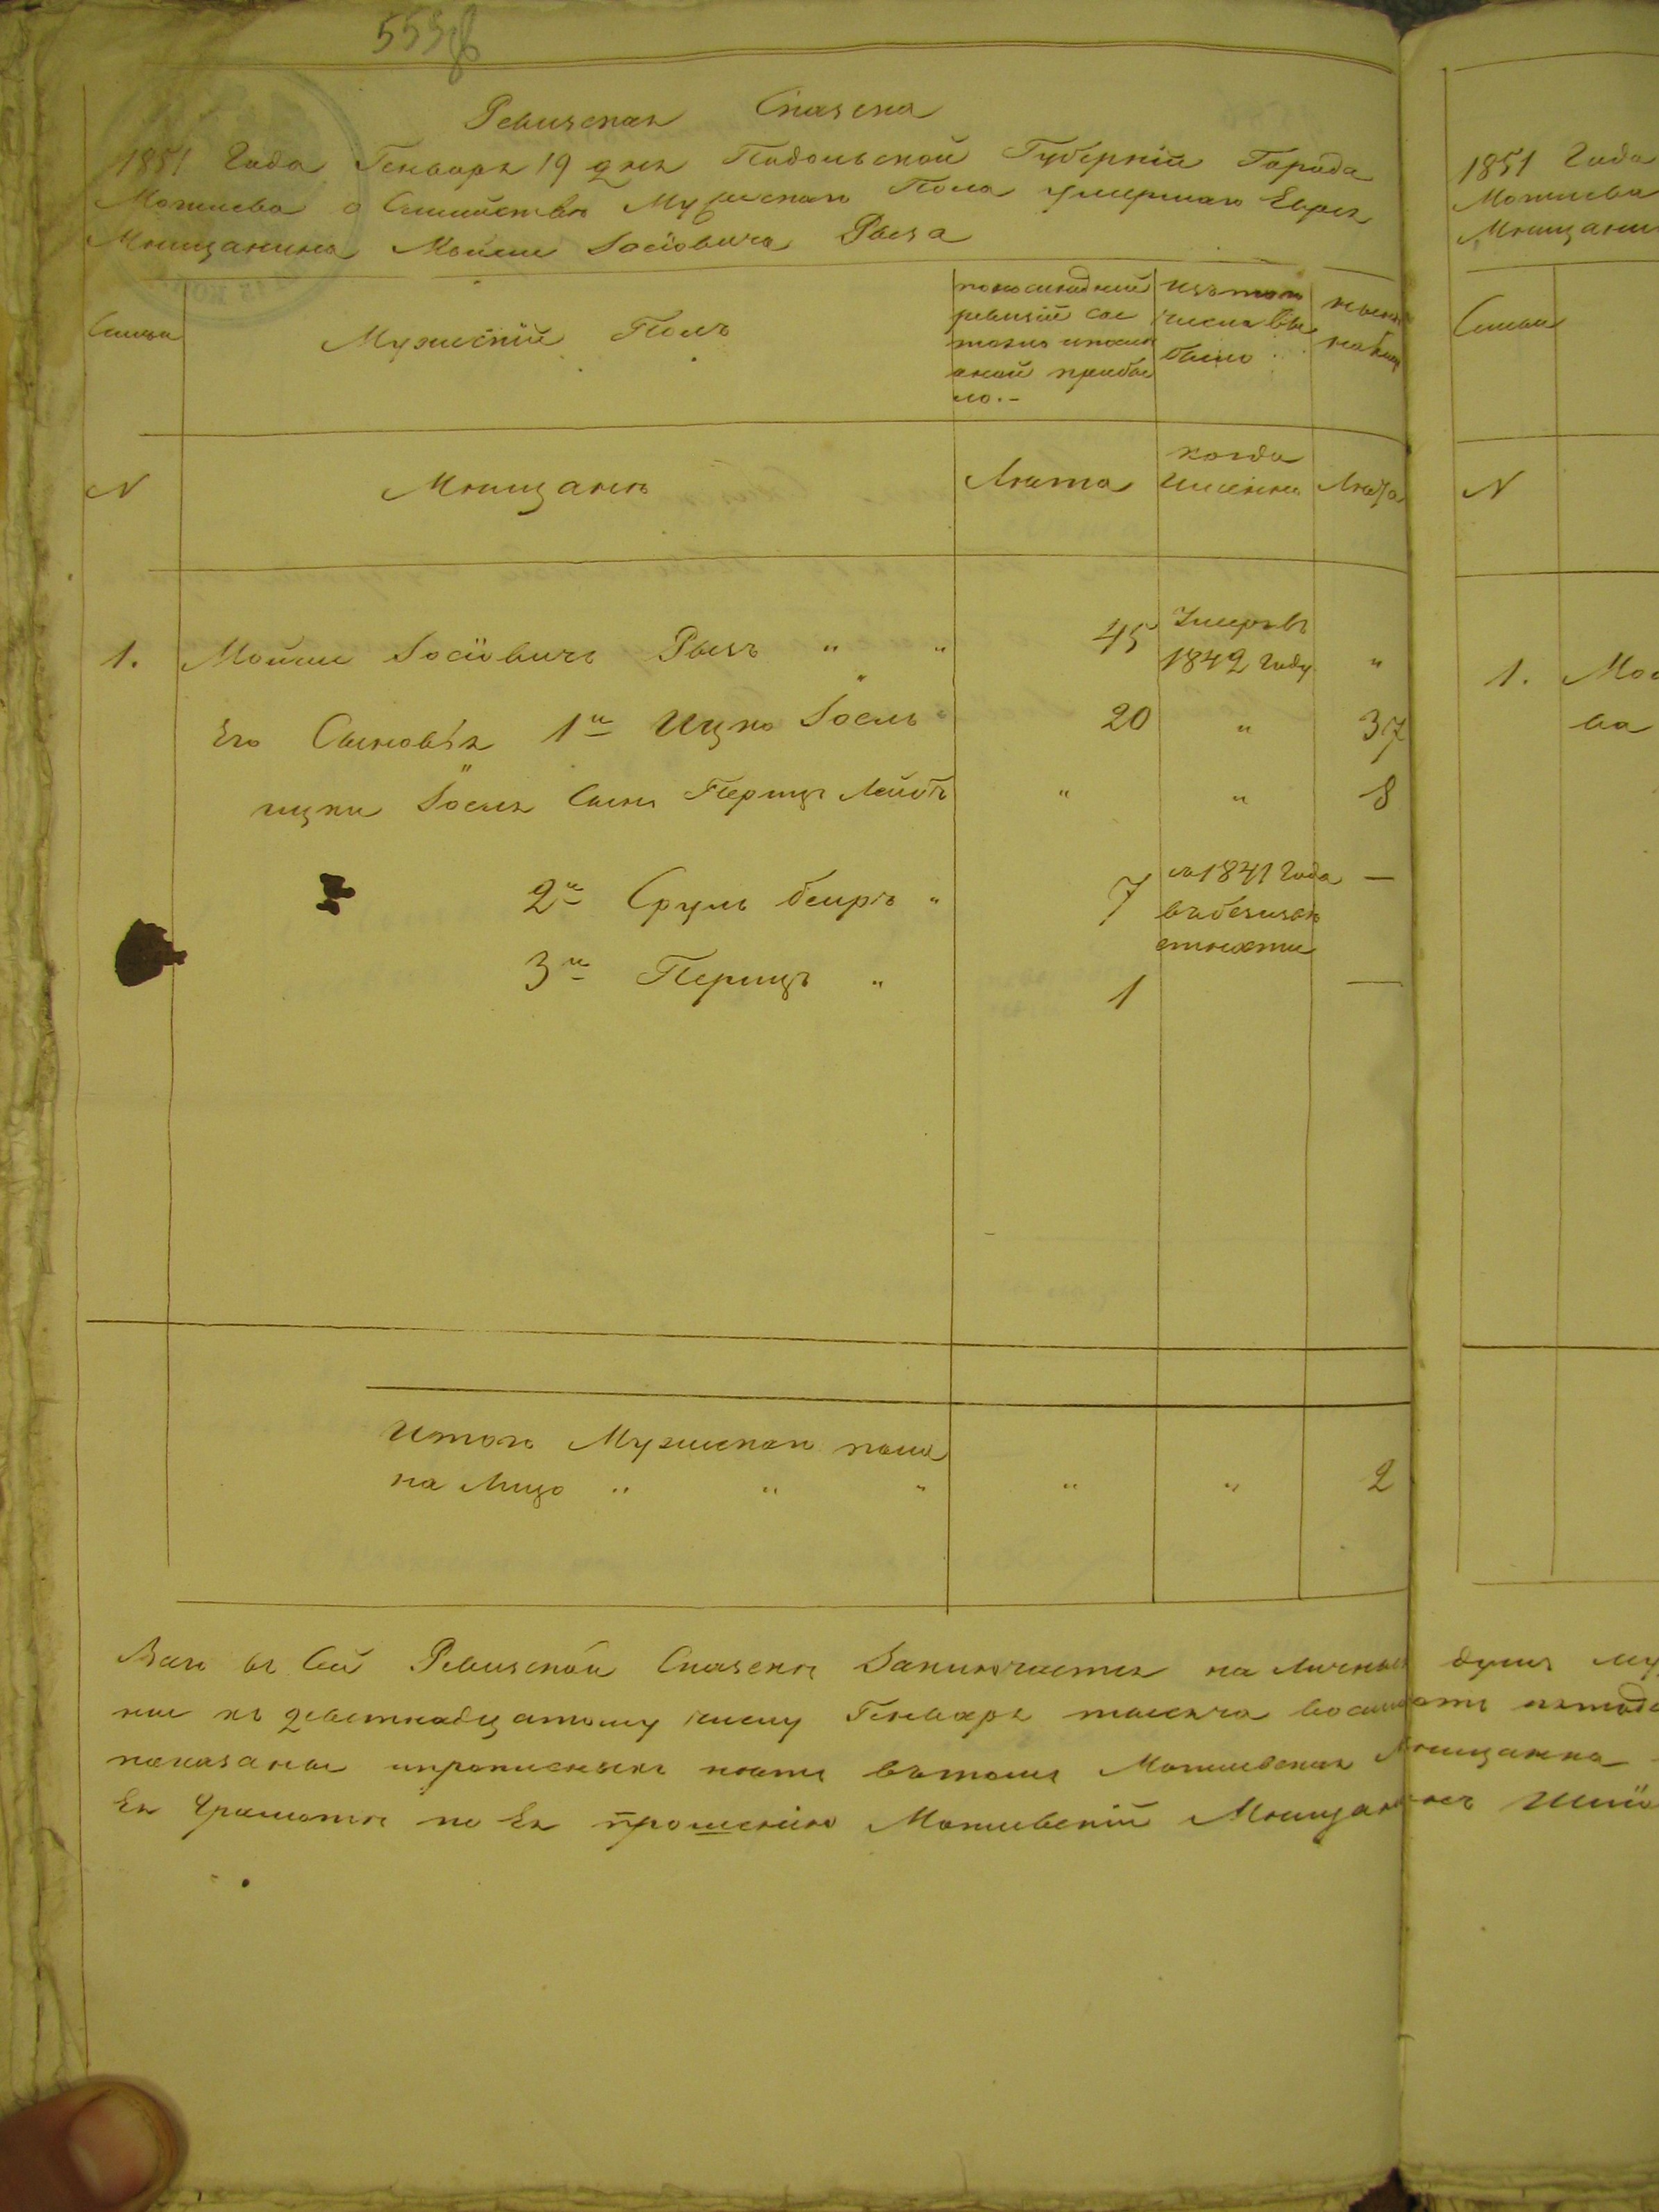 553
Ревизская Сказска
1851 Года Генваря 19 дня Подольской Губерніи Города
Могилева о Семействѣ Мужескаго Пола умершаго Еврея
Мѣщанина Мойши Іосіовича Рыза
Семьи
Мужескій Полъ
по последней
ревизій сос
тояло и после
оной прибы
ло.-
изъ того
числа вы
было
ныне
налицо
N
Мѣщане
Лѣта
когда
Именно
Лѣта
1. Мойше Іосіовичъ Рызъ " " 45 Умеръ въ
1842 году "
Его Сыновья 1й Ицко Іосль 20 " 37
ицки Іосля Сынъ Перицъ Лейбъ " " 8
2й Сруль беиръ " 7 съ 1841 Года —
въ безизвѣ
стности
3й Перицъ " 1 —
Итого Мужескаго пола
на Лицо " " " " " 2
Всего въ Сей Ревизской Сказскѣ Заключается на личныхъ душъ му
ние къ девятнадцатому числу Генваря тысяча восимсотъ пятьде
показаны и прописныхъ нетъ въ томъ Могилевская Мѣщанка
Ея Грамотѣ по Ея прошенію Могилевскій Мѣщанинъ
1851 Года
Могилева
Мѣщани
Семьи
N
1. Мос
ва